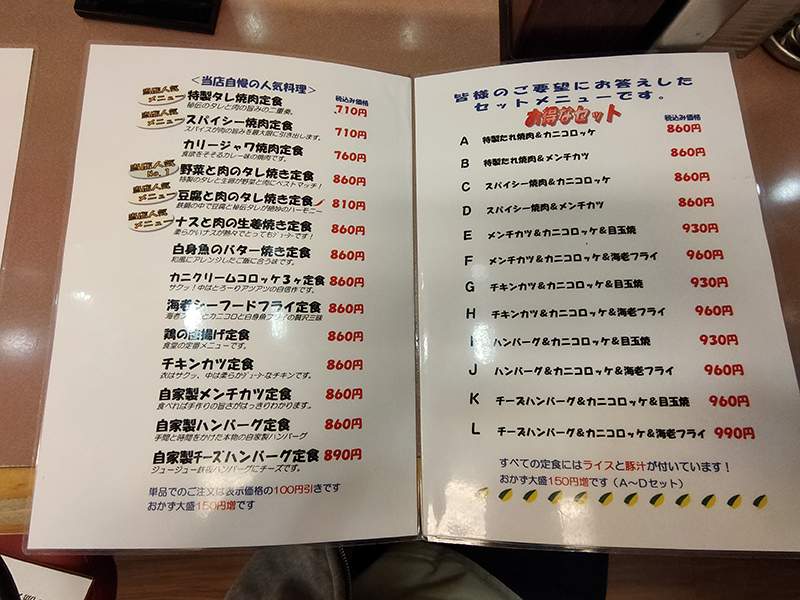 <当店自慢の人気料理>
税込み価格
当店人気
メニュー
特製タレ焼肉定食
710円
秘伝のタレと肉の旨みの二重奏。
当店人気
メニュー
スパイシー焼肉定食
710円
スパイスが肉の旨みを最大限に引き出します。
カリージャワ焼肉定食
760円
食欲をそそるカレー味の焼肉です。
当店人気
No.1
野菜と肉のタレ焼き定食
860円
特製のタレと生卵が野菜と肉にベストマッチ！
当店人気
メニュー
豆腐と肉のタレ焼き定食
810円
鉄鍋の中で豆腐と秘伝タレが絶妙のハーモニー
当店人気
メニュー
ナスと肉の生姜焼き定食
860円
柔らかいナスが熱々でとってもｼﾞｭｰｼｰです！
白身魚のバター焼き定食
860円
和風にアレンジしたご飯に合う味です。
カニクリームコロッケ３ヶ定食
860円
サクッ！中はとろーりアツアツの自信作です。
海老シーフードフライ定食
860円
海老フライとカニコロと白身魚フライの贅沢三昧
鶏の唐揚げ定食
860円
食堂の定番メニューです。
チキンカツ定食
860円
衣はサクッ、中は柔らかｼﾞｭｰｼｰなチキンです。
自家製メンチカツ定食
860円
食べれば手作りの旨さがはっきりわかります。
自家製ハンバーグ定食
860円
手間と時間をかけた本物の自家製ハンバーグ
自家製チーズハンバーグ定食
890円
ジュージュー鉄板ハンバーグにチーズです。
単品でのご注文は表示価格の100円引きです
おかず大盛150円増です
皆様のご要望にお答えした
セットメニューです。
お得なセット
税込み価格
A 特製だれ焼肉＆カニコロッケ 860円
B 特製だれ焼肉＆メンチカツ 860円
C スパイシー焼肉＆カニコロッケ 860円
D スパイシー焼肉＆メンチカツ 860円
E メンチカツ＆カニコロッケ＆目玉焼 930円
F メンチカツ＆カニコロッケ＆海老フライ 960円
G チキンカツ＆カニコロッケ＆目玉焼 930円
H チキンカツ＆カニコロッケ＆海老フライ 960円
I ハンバーグ＆カニコロッケ＆目玉焼 930円
J ハンバーグ＆カニコロッケ＆海老フライ 960円
K チーズハンバーグ＆カニコロッケ＆目玉焼 960円
L チーズハンバーグ＆カニコロッケ＆海老フライ 990円
すべての定食にはライスと豚汁が付いています！
おかず大盛150円増です（A〜Dセット）